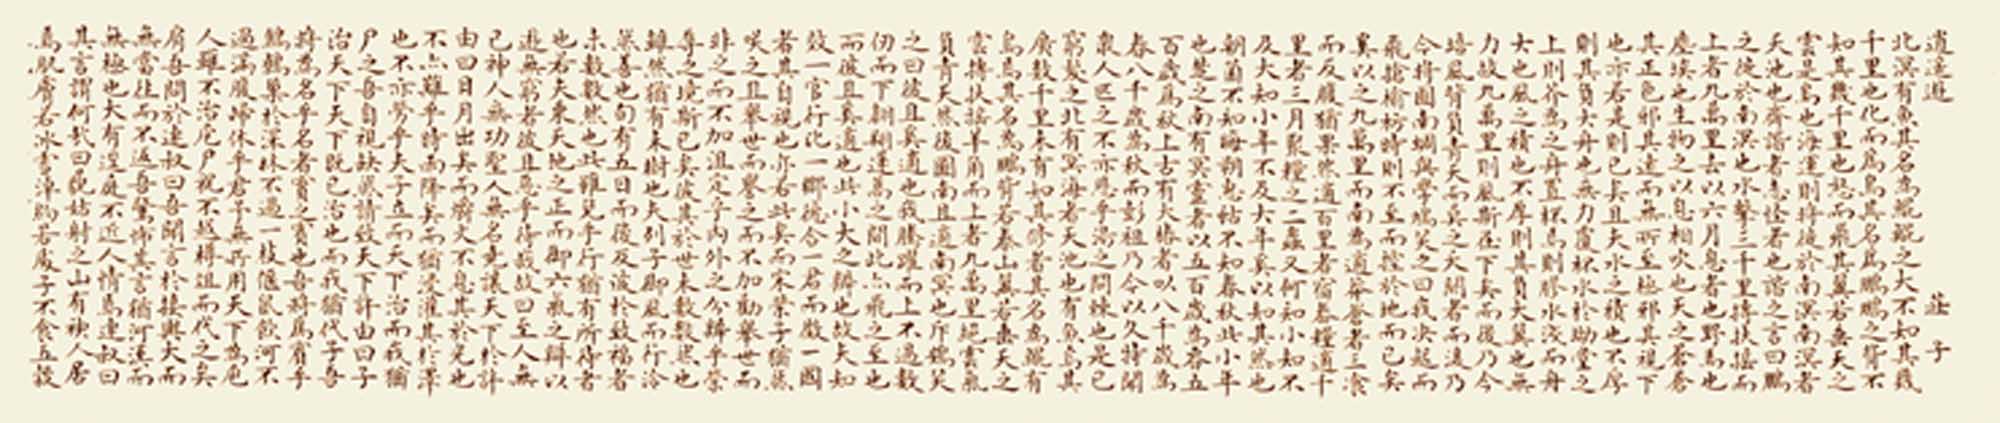 逍遙遊　莊子
北溟有魚其名為鯤鯤之大不知其幾
千里也化而為鳥其名為鵬鵬之背不
知其幾千里也怒而飛其翼若垂天之
雲是鳥也海運則將徙於南溟南溟者
天池也齊諧者志怪者也諧之言曰鵬
之徙於南溟也水擊三千里摶扶搖而
上者九萬里去以六月息者也野馬也
塵埃也生物之以息相吹也天之蒼蒼
其正色邪其遠而無所至極邪其視下
也亦若是則已矣且夫水之積也不厚
則其負大舟也無力覆杯水於坳堂之
上則芥為之舟置杯焉則膠水淺而舟
大也風之積也不厚則其負大翼也無
力故九萬里則風斯在下矣而後乃今
培風背負青天而莫之夭閼者而後乃
今將圖南蜩與學鳩笑之曰我決起而
飛搶榆枋時則不至而控於地而已矣
奚以之九萬里而南為適莽蒼者三飡
而反腹猶果然適百里者宿舂糧適千
里者三月聚糧之二蟲又何知小知不
及大知小年不及大年奚以知其然也
朝菌不知晦朔蟪蛄不知春秋此小年
也楚之南有冥靈者以五百歲為春五
百歲為秋上古有大椿者以八千歲為
春八千歲為秋而彭祖乃今以久特聞
眾人匹之不亦悲乎湯之問棘也是已
窮髮之北有冥海者天池也有魚焉其
廣數千里未有知其修者其名為鯤有
鳥焉其名為鵬背若泰山翼若垂天之
雲摶扶搖羊角而上者九萬里絕雲氣
負青天然後圖南且適南冥也斥鴳笑
之曰彼且奚適也我騰躍而上不過數
仞而下翱翔蓬蒿之間此亦飛之至也
而彼且奚適也此小大之辯也故夫知
效一官行比一鄉德合一君而徵一國
者其自視也亦若此矣而宋榮子猶然
笑之且舉世而譽之而不加勸舉世而
非之而不加沮定乎內外之分辯乎榮
辱之境斯已矣彼其於世未數數然也
雖然猶有未樹也夫列子御風而行泠
然善也旬有五日而後反彼於致福者
未數數然也此雖免乎行猶有所待者
也若夫乘天地之正而御六氣之辯以
遊無窮者彼且惡乎待哉故曰至人無
己神人無功聖人無名堯讓天下於許
由曰日月出矣而爝火不息其於光也
不亦難乎時雨降矣而猶浸灌其於澤
也不亦勞乎夫子立而天下治而我猶
尸之吾自視缺然請致天下許由曰子
治天下天下既已治也而我猶代子吾
將為名乎名者實之賓也吾將為賓乎
鷦鷯巢於深林不過一枝偃鼠飲河不
過滿腹歸休乎君予無所用天下為庖
人雖不治庖尸祝不越樽俎而代之矣
肩吾問於連叔曰吾聞言於接輿大而
無當往而不返吾驚怖其言猶河漢而
無極也大有逕庭不近人情焉連叔曰
其言謂何哉曰藐姑射之山有神人居
焉肌膚若冰雪淖約若處子不食五穀